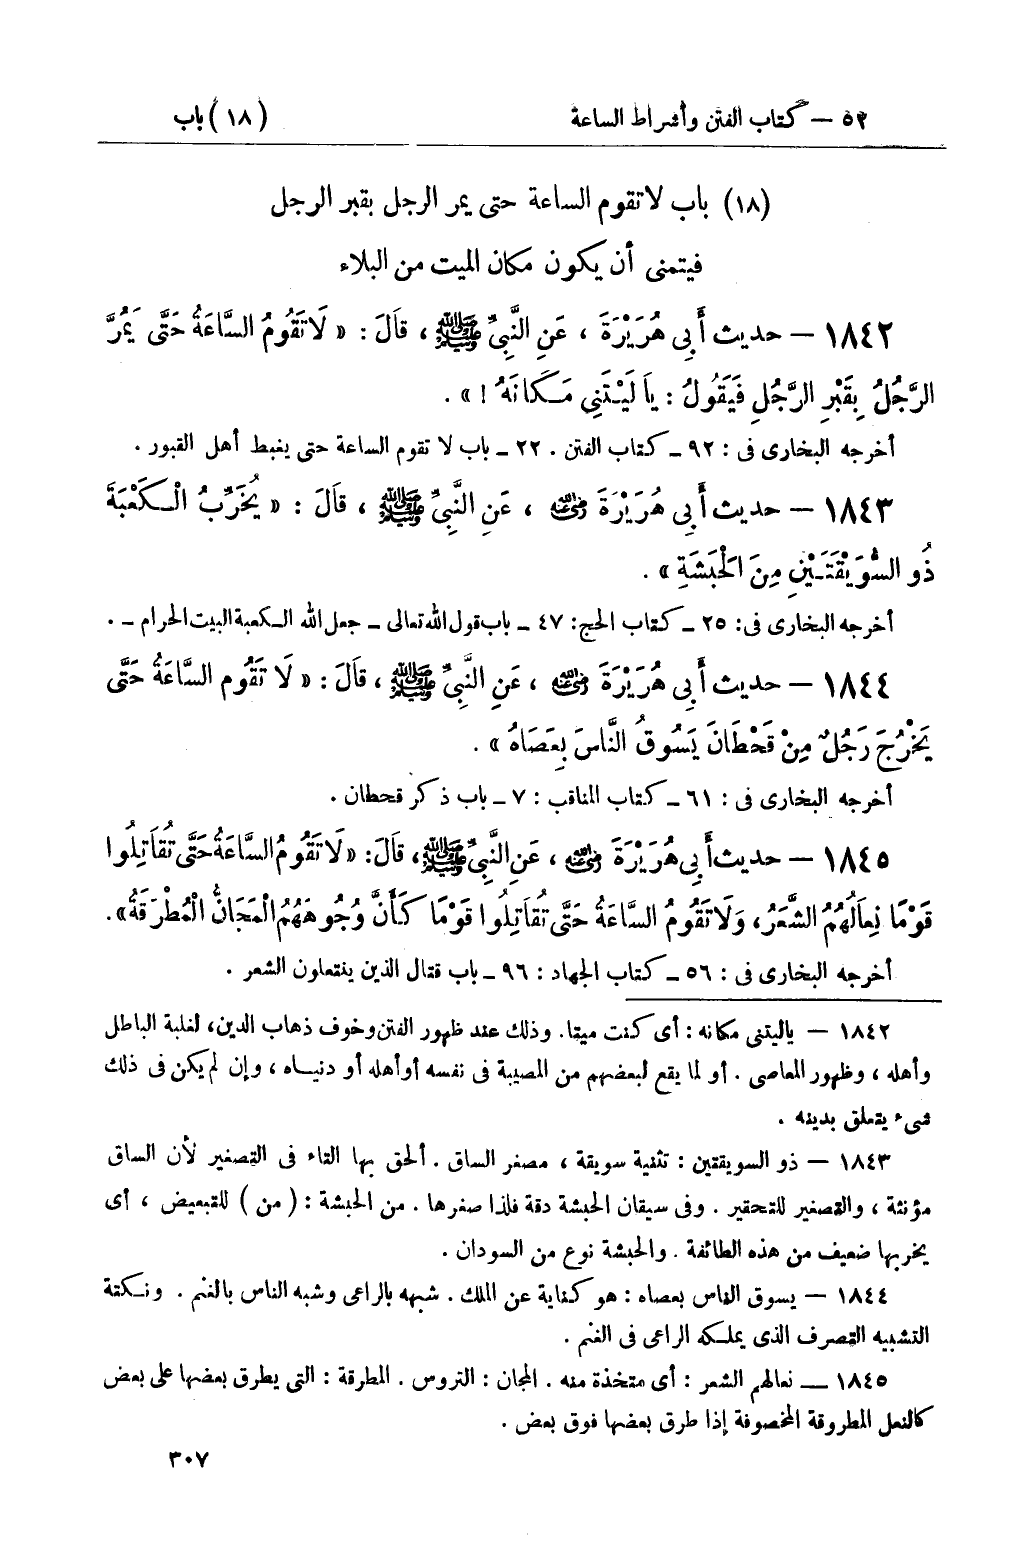 ٥٢ — كتاب الفتن وأشراط الساعة (١٨) باب
(١٨) باب لا تقوم الساعة حتى يمر الرجل بقبر الرجل
فيتمنى أن يكون مكان الميت من البلاء
١٨٤٢ — حديث أَبِي هُرَيْرَةَ ، عَنِ النَّبِيِّ ﷺ ، قَالَ : « لَا تَقُومُ السَّاعَةُ حَتَّى يَمُرَّ
الرَّجُلُ بِقَبْرِ الرَّجُلِ فَيَقُولُ : يَا لَيْتَنِي مَكَانَهُ ! » .
أخرجه البخارى فى : ٩٢ ـ كتاب الفتن . ٢٢ ـ باب لا تقوم الساعة حتى يغبط أهل القبور .
١٨٤٣ — حديث أَبِي هُرَيْرَةَ رضي الله عنه ، عَنِ النَّبِيِّ ﷺ ، قَالَ : « يُخَرِّبُ الْكَعْبَةَ
ذُو السُّوَيْقَتَيْنِ مِنَ الْحَبَشَةِ » .
أخرجه البخارى فى : ٢٥ ـ كتاب الحج : ٤٧ ـ باب قول الله تعالى ـ جعل الله الكعبة البيت الحرام ـ .
١٨٤٤ — حديث أَبِي هُرَيْرَةَ رضي الله عنه ، عَنِ النَّبِيِّ ﷺ ، قَالَ : « لَا تَقُومُ السَّاعَةُ حَتَّى
يَخْرُجَ رَجُلٌ مِنْ قَحْطَانَ يَسُوقُ النَّاسَ بِعَصَاهُ » .
أخرجه البخارى فى : ٦١ ـ كتاب المناقب : ٧ ـ باب ذكر قحطان .
١٨٤٥ — حديث أَبِي هُرَيْرَةَ رضي الله عنه ، عَنِ النَّبِيِّ ﷺ ، قَالَ : « لَا تَقُومُ السَّاعَةُ حَتَّى تُقَاتِلُوا
قَوْمًا نِعَالُهُمُ الشَّعَرُ ، وَلَا تَقُومُ السَّاعَةُ حَتَّى تُقَاتِلُوا قَوْمًا كَأَنَّ وُجُوهَهُمُ الْمَجَانُّ الْمُطْرَقَةُ » .
أخرجه البخارى فى : ٥٦ ـ كتاب الجهاد : ٩٦ ـ باب قتال الذين ينتعلون الشعر .
١٨٤٢ — ياليتنى مكانه : أى كنت ميتا . وذلك عند ظهور الفتن وخوف ذهاب الدين ، لغلبة الباطل
وأهله ، وظهور المعاصى . أو لما يقع لبعضهم من المصيبة فى نفسه أو أهله أو دنياه ، وإن لم يكن فى ذلك
شىء يتعلق بدينه .
١٨٤٣ — ذو السويقتين : تثنية سويقة ، مصغر الساق . ألحق بها التاء فى التصغير لأن الساق
مؤنثة ، والتصغير للتحقير . وفى سيقان الحبشة دقة فلذا صغرها . من الحبشة : ( من ) للتبعيض ، أى
يخربها ضعيف من هذه الطائفة . والحبشة نوع من السودان .
١٨٤٤ — يسوق الناس بعصاه : هو كناية عن الملك . شبهه بالراعى وشبه الناس بالغنم . ونكتة
التشبيه التصرف الذى يملكه الراعى فى الغنم .
١٨٤٥ — نعالهم الشعر : أى متخذة منه . المجان : التروس . المطرقة : التى يطرق بعضها على بعض
كالنعل المطروقة المخصوفة إذا طرق بعضها فوق بعض .
٣٠٧